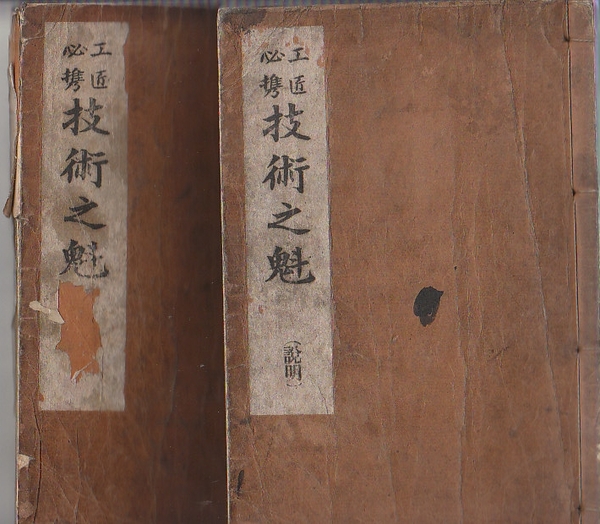 工匠
必携
技術之魁
(説明)
工匠
必携
技術之魁